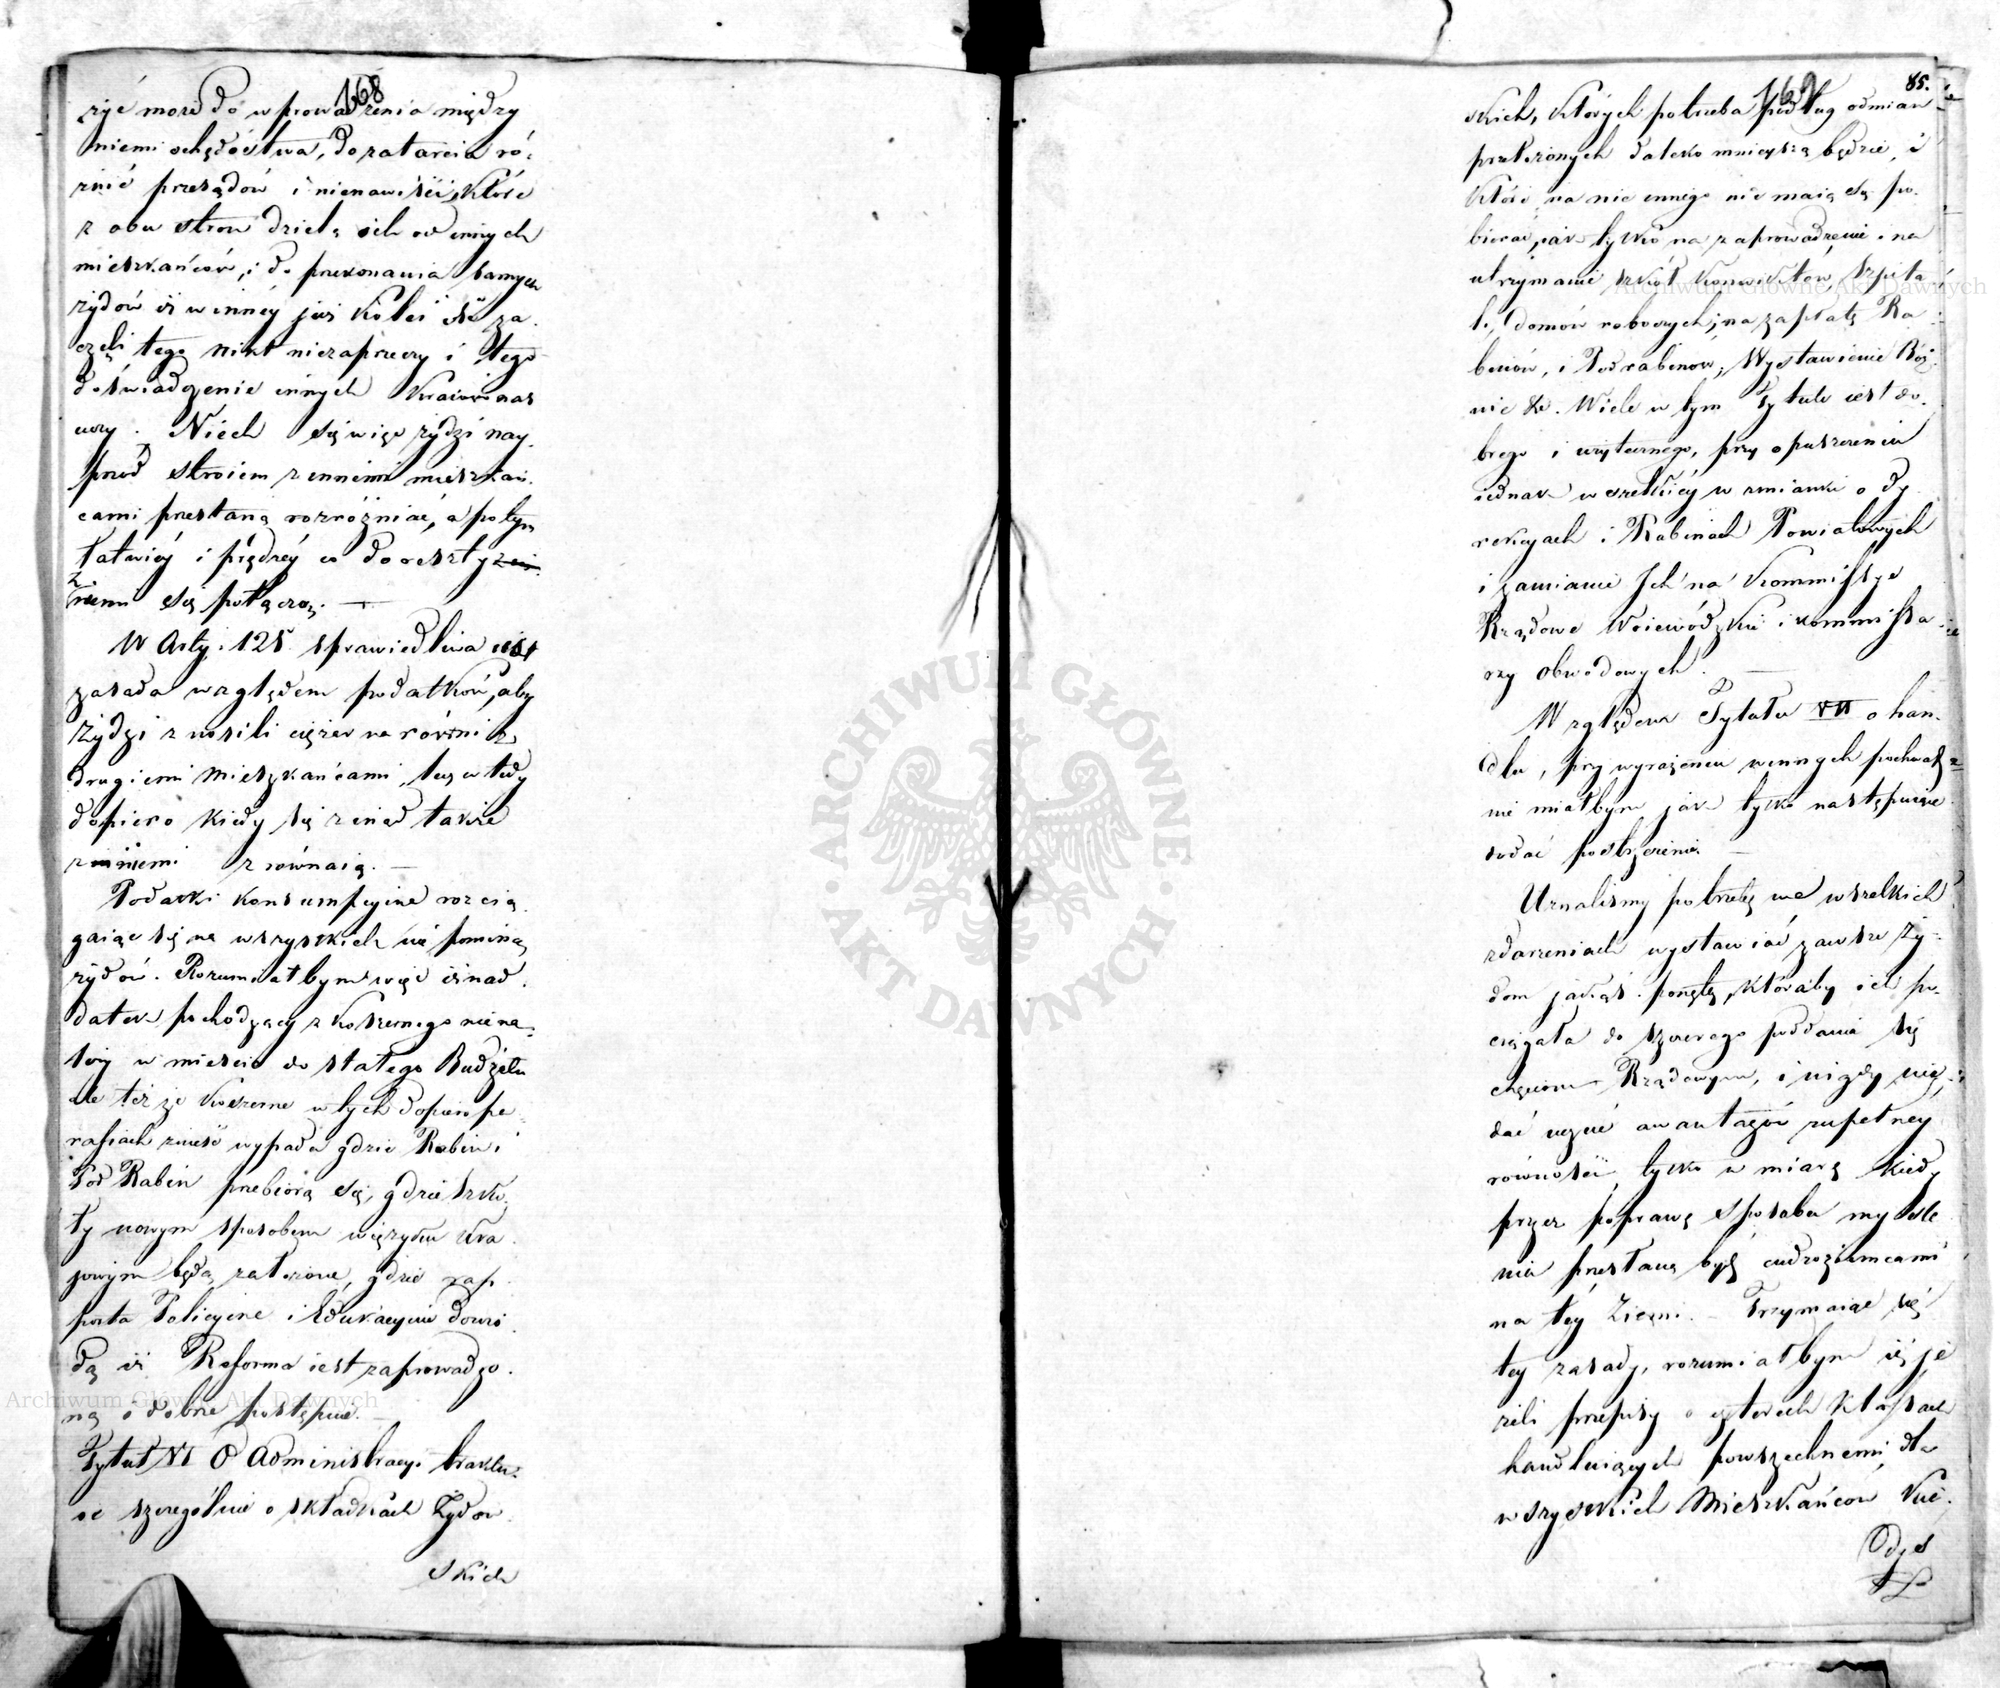 168
żyć może do wprowadzenia między
niemi ochędóstwa, do zatarcia ró-
żnic przesądów i nienawiści, które
z obu stron dzielą ich od innych
mieszkańców, i do przekonania samych
żydów iż w inney już kolei się za-
częli tego nikt niezaprzeczy i tego
doświadczenie innych Kraiów nas
uczy. Niech się więc żydzi nay-
przód stroiem z innemi mieszkań-
cami przestaną rozróżniać, a potym
łatwiey i prędzey co do reszty
z niemi się połączą. —
W Arty. 125 sprawiedliwa iest
zasada względem podatków, aby
Żydzi znosili ciężar na równi z
drugiemi Mieszkańcami, lecz wtedy
dopiero kiedy się z inąd także
z niemi zrównaią. —
Podatki konsumpcyine rozcią-
gaiąc się na wszystkich nie pominą
żydów. Rozumiałbym więc iż nad-
datek pochodzący z koszernego nie na-
leży w mieścić do stałego Budżetu
ale też że Koszerne w tych dopiero pa-
rafiach znieść wypada gdzie Rabin i
Pod Rabin przebiorą się, gdzie szko-
ły nowym sposobem w ięzyku Kra-
jowym będą założone, gdzie rap-
porta Policyine i Edukacyine dowio-
dą iż Reforma iest zaprowadzo-
ną i dobrze postępuie. —
Tytuł VI O Administracyi traktu-
ie szczególnie o składkach Żydow-
skich
169
85.
skich, których potrzeba podług odmian
przełożonych daleko mnieyszą będzie, i
które na nic innego nie maią się po-
bierać, iak tylko na zaprowadzenie i na
utrzymanie szkół Konwiktów, Szpita-
li, domów roboczych; na zapłatę Ra-
binów, i Podrabinów, Wystawienie Bóż-
nic &c. Wiele w tym Tytule iest do-
brego i użytecznego, przy opuszczeniu
iednak wszelkiey wzmianki o dy-
rekcyach i Rabinach Powiatowych
i zamianie Ich na Kommissye
Rządowe Woiewódzkie i kommissa-
rzy Obwodowych. —
Względem Tytułu VII o han-
dlu, przy wyrażeniu winnych pochwał
nie miałbym jak tylko następuiące
dodać postrzeżenia. —
Uznaliśmy potrzebę we wszelkich
zdarzeniach wystawiać zawsze Ży-
dom jakąś ponętę, któraby ich po-
ciągała do szczerego poddania się
chęciom Rządowym, i nigdy nie
dać uczuć awantażów zupełney
równości, tylko w miarę kiedy
przez poprawę sposobu myśle-
nia przestaną być cudzoziemcami
na tey Ziemi. — Trzymaiąc się
tey zasady, rozumiałbym iż je-
żeli przepisy o czterech klassach
handluiących powszechnemi dla
wszystkich Mieszkańców Kró-
Archiwum Główne Akt Dawnych
Archiwum Główne Akt Dawnych
ARCHIWUM GŁÓWNE · AKT DAWNYCH ·